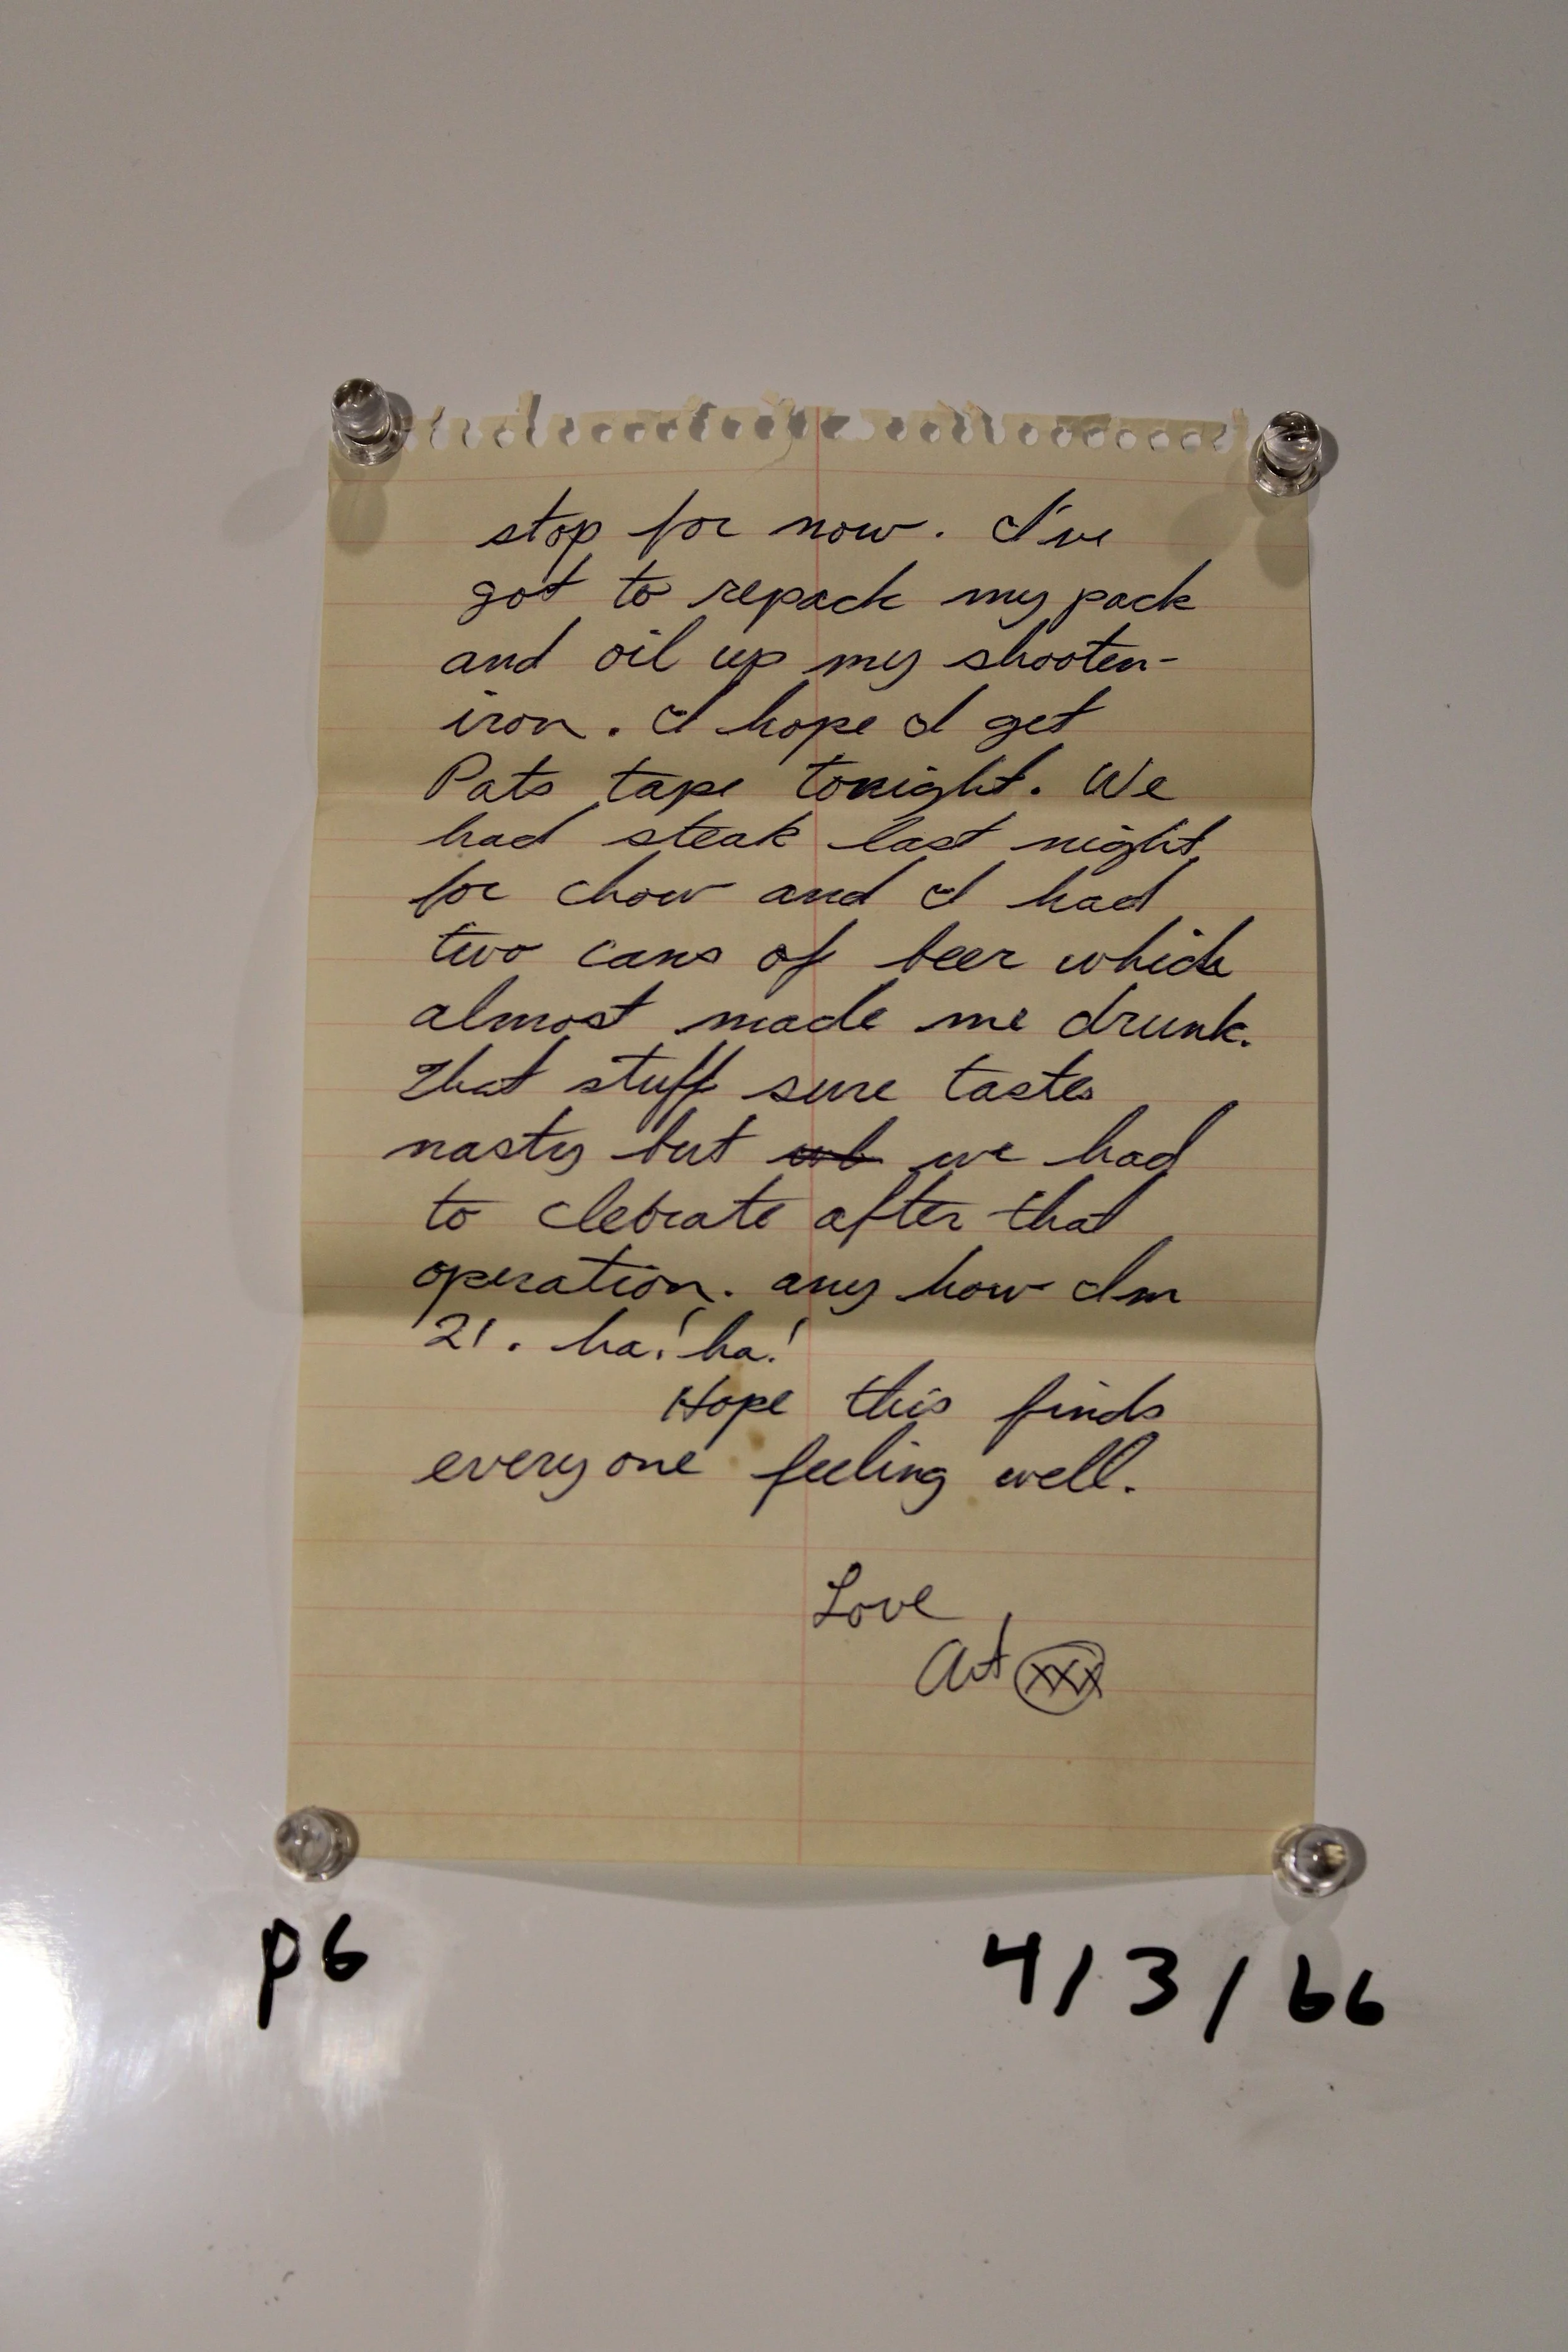 stop for now. I've
got to repack my pack
and oil up my shooten-
iron. I hope I get
Pats tape tonight. We
had steak last night,
for chow and I had
two cans of beer which
almost made me drunk.
That stuff sure tastes
nasty but we had
to clebrate after that
operation. any how Im
21. ha! ha!
Hope this finds
everyone feeling well.
Love
Art XXX
p6
4/3/66